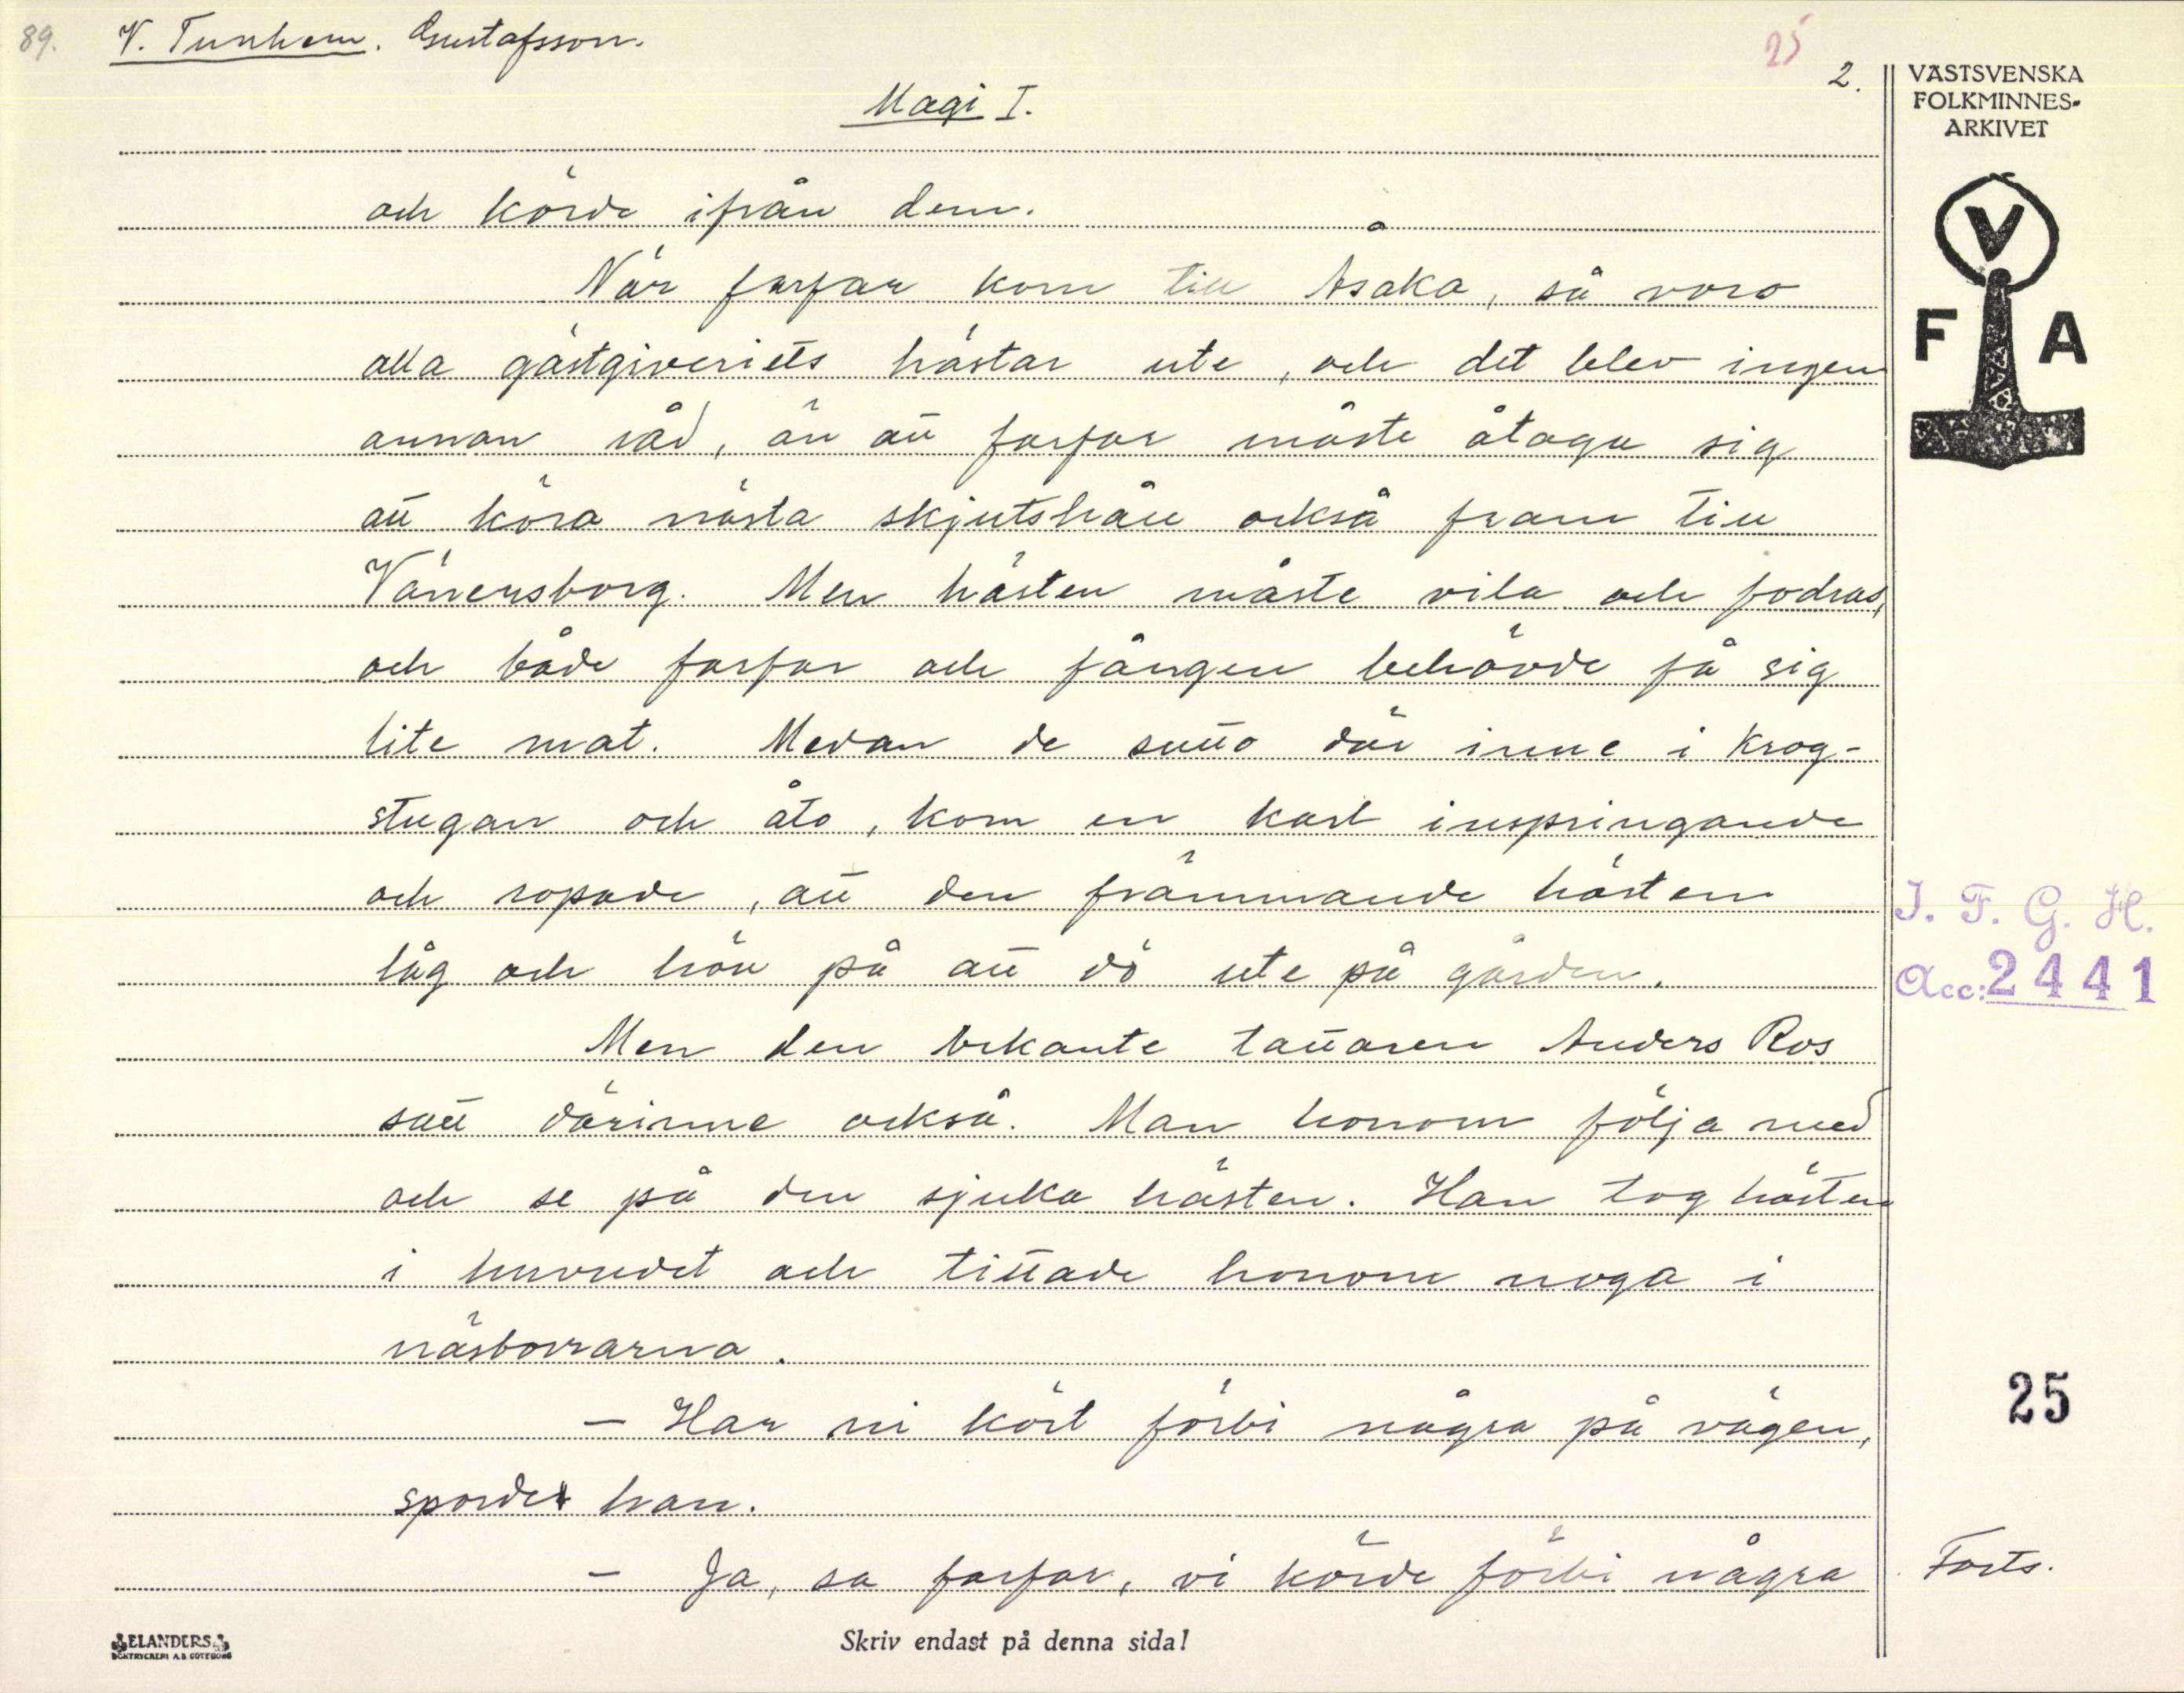 89. V. Tunhem. Gustafsson.
25
2.
Magi I.
VÄSTSVENSKA
FOLKMINNES-
ARKIVET
V
F A
och körde ifrån dem.
När farfar kom till Åsaka, så voro
alla gästgiveriets hästar ute, och det blev ingen
annan råd, än att farfar måste åtaga sig
att köra nästa skjutshåll också fram till
Vänersborg. Men hästen måste vila och fodras,
och både farfar och fången behövde få sig
lite mat. Medan de sutto där inne i krog-
stugan och åto, kom en karl inspringande
och ropade, att den främmande hästen
låg och höll på att dö ute på gården.
Men den bekante tattaren Anders Ros
satt därinne också. Man honom följa med
och se på den sjuka hästen. Han tog hästen
i huvudet och tittade honom noga i
näsborrarna.
– Har ni kört förbi några på vägen,
sporde han.
– Ja, sa farfar, vi körde förbi några
I. F. G. H.
Acc: 2441
25
Forts.
ELANDERS
BOKTRYCKERI A.B. GÖTEBORG
Skriv endast på denna sida!